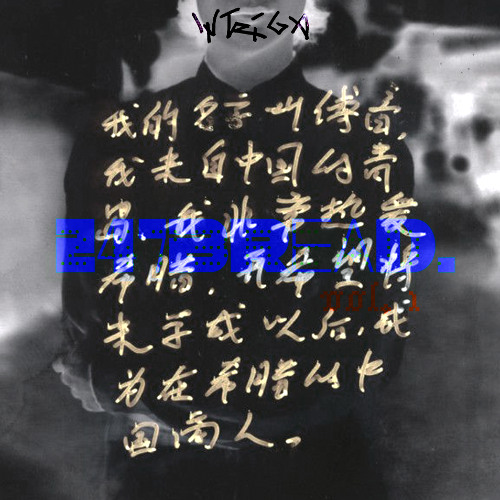 WTEIGN
我的名字叫傅音,
我来自中国的青
岛,我非常热爱
2479DREAD.
希腊,并希望将
vol. 1
来学成以后,成
为在希腊的中
国商人。